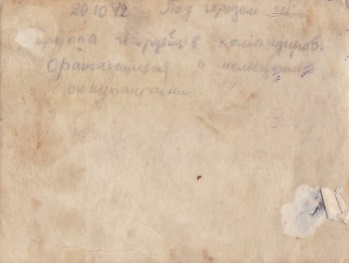 20.10.42 Под городом
группа гвардейцев командиров.
Сражающихся с немецкими
оккупантами